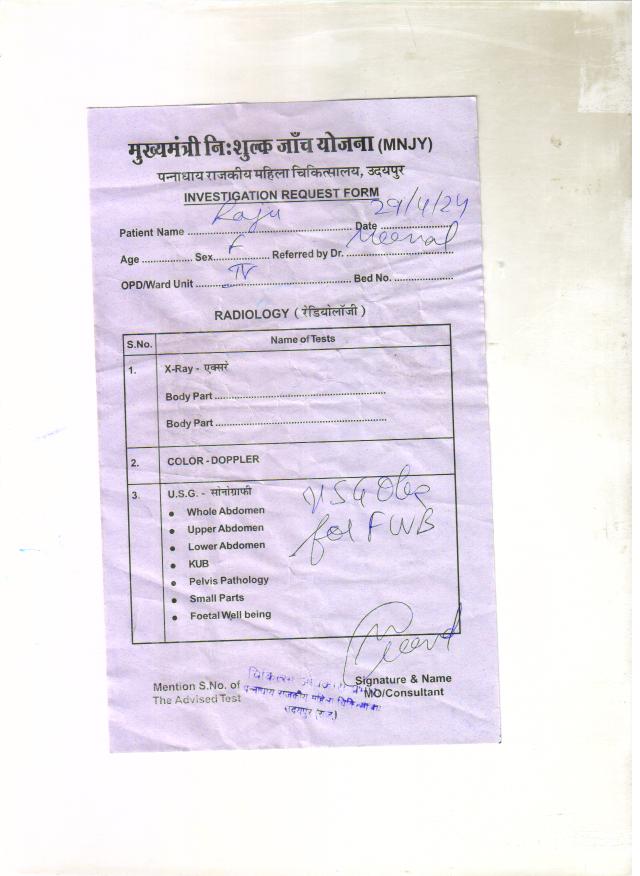 मुख्यमंत्री निःशुल्क जाँच योजना (MNJY)
पन्नाधाय राजकीय महिला चिकित्सालय, उदयपुर
INVESTIGATION REQUEST FORM
Patient Name Raju Date 29/4/24
Age Sex F Referred by Dr. Meenal
OPD/Ward Unit IV Bed No.
RADIOLOGY ( रेडियोलॉजी )
S.No. Name of Tests
1. X-Ray - एक्सरे
Body Part
Body Part
2. COLOR - DOPPLER
3. U.S.G. - सोनोग्राफी
USG Obs
for FWB
• Whole Abdomen
• Upper Abdomen
• Lower Abdomen
• KUB
• Pelvis Pathology
• Small Parts
• Foetal Well being
Mention S.No. of
The Advised Test
Signature & Name
MO/Consultant
पन्नाधाय राजकीय महिला चिकित्सालय
उदयपुर (राज.)